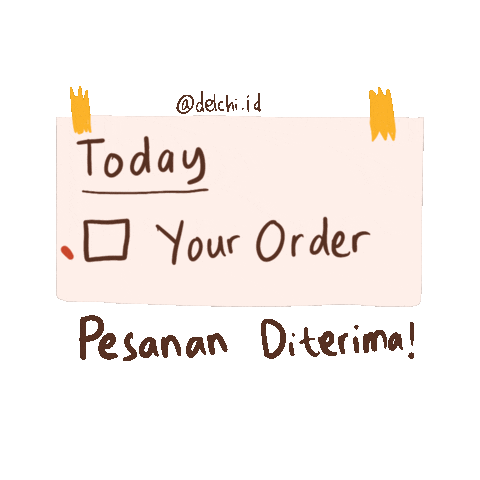 @delchi.id
Today
Your Order
Pesanan Diterima!